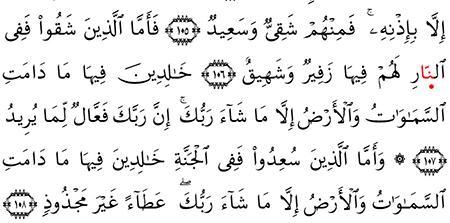 إِلَّا بِإِذْنِهِۦۚ فَمِنْهُمْ شَقِىٌّ وَسَعِيدٌ ﴿١٠٥﴾ فَأَمَّا ٱلَّذِينَ شَقُوا۟ فَفِى
ٱلنَّارِ لَهُمْ فِيهَا زَفِيرٌ وَشَهِيقٌ ﴿١٠٦﴾ خَـٰلِدِينَ فِيهَا مَا دَامَتِ
ٱلسَّمَـٰوَٰتُ وَٱلْأَرْضُ إِلَّا مَا شَآءَ رَبُّكَۚ إِنَّ رَبَّكَ فَعَّالٌ لِّمَا يُرِيدُ
﴿١٠٧﴾ ۞ وَأَمَّا ٱلَّذِينَ سُعِدُوا۟ فَفِى ٱلْجَنَّةِ خَـٰلِدِينَ فِيهَا مَا دَامَتِ
ٱلسَّمَـٰوَٰتُ وَٱلْأَرْضُ إِلَّا مَا شَآءَ رَبُّكَۖ عَطَآءً غَيْرَ مَجْذُوذٍ ﴿١٠٨﴾